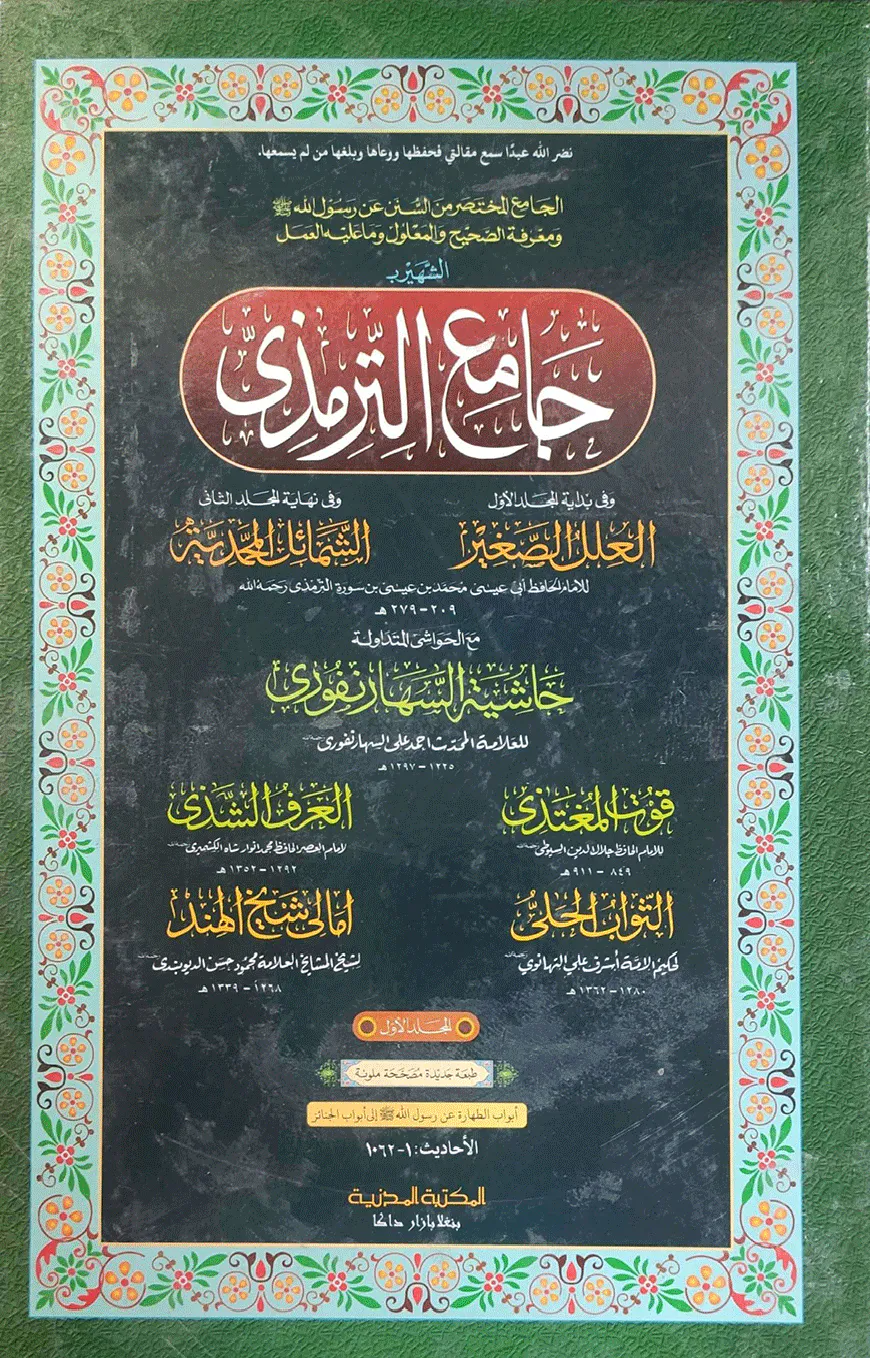 نضر الله عبدًا سمع مقالتي فحفظها ووعاها وبلغها من لم يسمعها.
الجامع المختصر من السنن عن رسول الله ﷺ
ومعرفة الصحيح والمعلول وما عليه العمل
الشهير بـ
جَامِعُ التِّرمِذِى
وفى بداية المجلد الأول
العلل الصغير
وفى نهاية المجلد الثانى
الشمائل المحمدية
للامام الحافظ أبي عيسى محمد بن عيسى بن سورة الترمذى رحمه الله
٢٠٩ - ٢٧٩ هـ
مع الحواشى المتداولة
حاشية السهارنفورى
للعلامة المحدث احمد على السهارنفورى
١٢٢٥ - ١٢٩٧ هـ
قوت المغتذى
للامام الحافظ جلال الدين السيوطى
٨٤٩ - ٩١١ هـ
العرف الشذى
لامام العصر الحافظ محمد انوار شاه الكشميرى
١٢٩٢ - ١٣٥٢ هـ
الثواب الحلى
لحكيم الامة أشرف علي التهانوي
١٢٨٠ - ١٣٦٢ هـ
امالى شيخ الهند
لشيخ المشايخ العلامة محمود حسن الديوبندى
١٢٦٨ - ١٣٣٩ هـ
المجلد الأول
طبعة جديدة مصححة ملونة
أبواب الطهارة عن رسول الله ﷺ إلى أبواب الجنائز
الأحاديث: ١-١٠٦٢
المكتبة المدنية
بنغلا بازار داكا